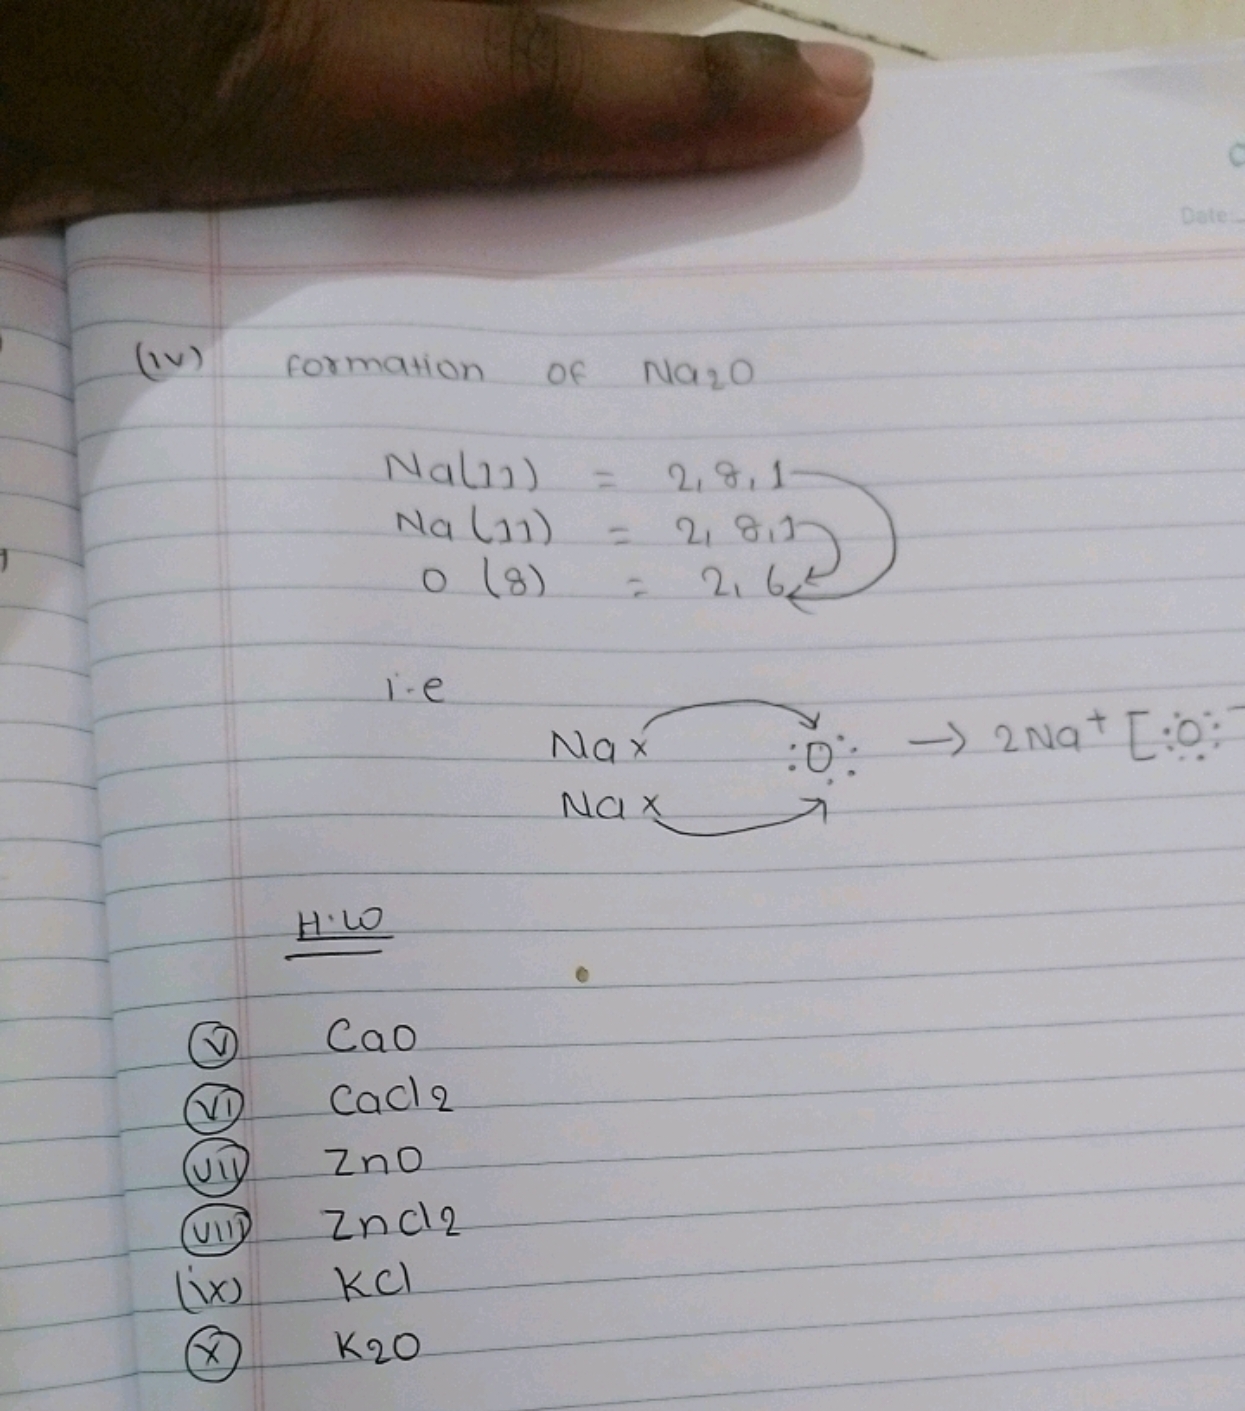 Date:
(iv) Formation of Na2O
Na(11) = 2, 8, 1
Na (11) = 2, 8, 1
O (8) = 2, 6
i.e
Na x :O: → 2Na+ [:O:
Na x
H.W
(v) CaO
(vi) CaCl2
(vii) ZnO
(viii) ZnCl2
(ix) KCl
(x) K2O